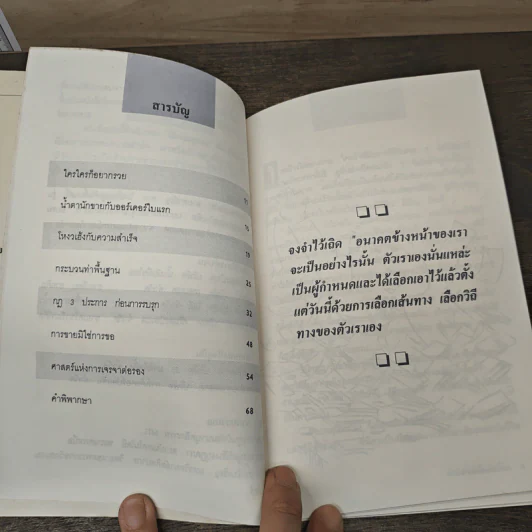 สารบัญ
ใครใครก็อยากรวย
น้ำตานักขายกับออร์เดอร์ใบแรก
โหงวเฮ้งกับความสำเร็จ
กระบวนท่าพื้นฐาน 25
กฎ 3 ประการ ก่อนการรบรุก 32
การขายมิใช่การขอ 48
ศาสตร์แห่งการเจรจาต่อรอง 54
คำพิพากษา 68
จงจำไว้เถิด "อนาคตข้างหน้าของเรา
จะเป็นอย่างไรนั้น ตัวเราเองนั่นแหละ
เป็นผู้กำหนดและได้เลือกเอาไว้แล้วตั้ง
แต่วันนี้ด้วยการเลือกเส้นทาง เลือกวิถี
ทางของตัวเราเอง